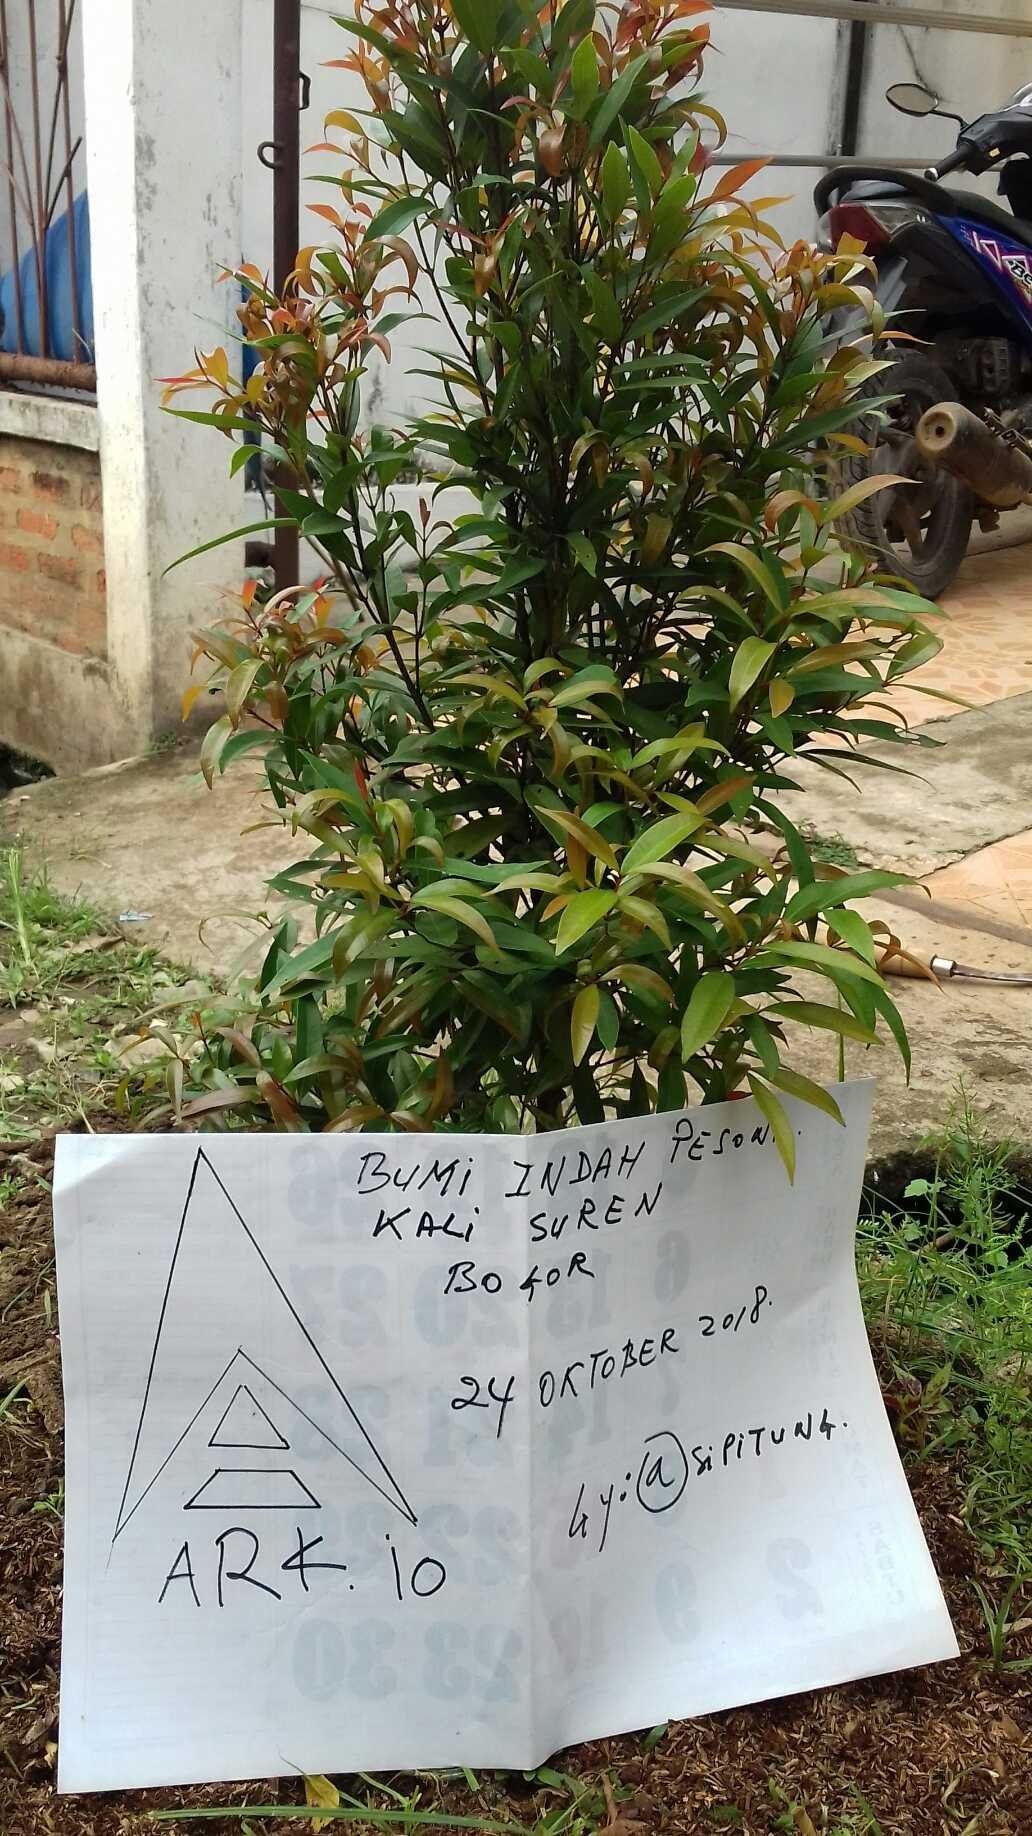 BUMi INDAH PESONA.
KALi SUREN
BOGOR
24 OKTOBER 2018.
by: @SiPiTUNG.
ARK.io